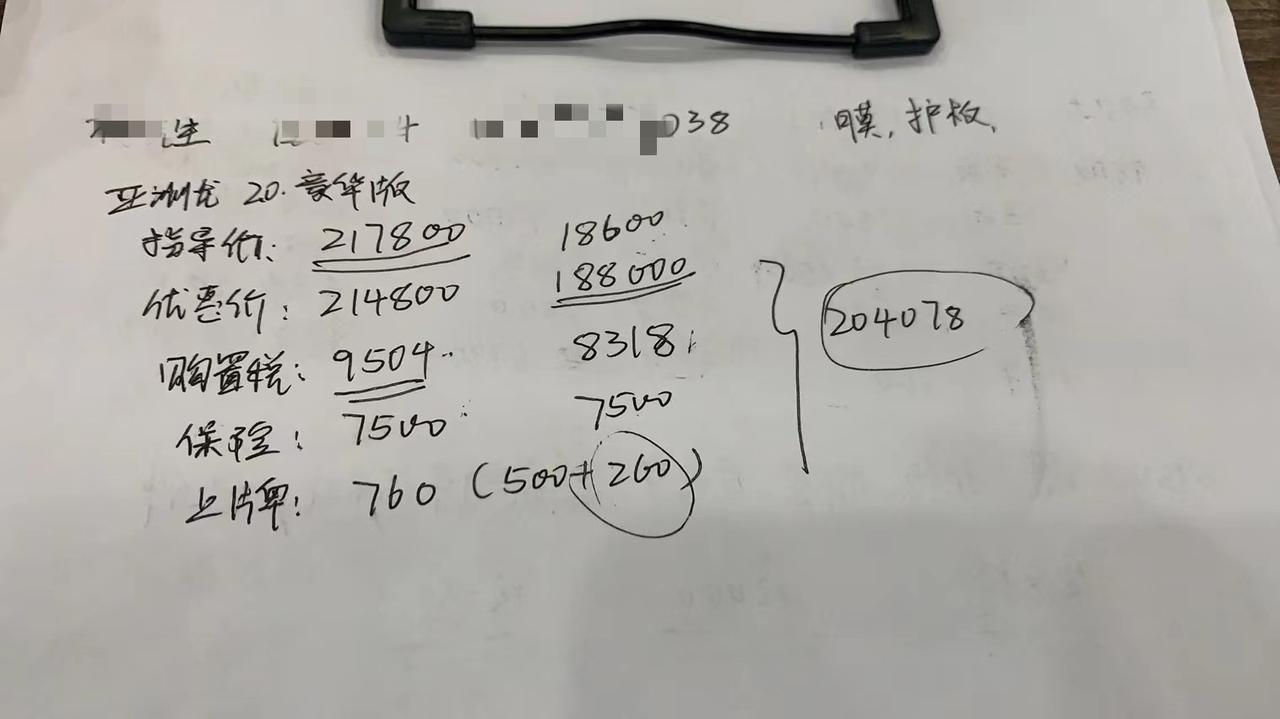 生 038 膜,护板,
亚洲龙 20.豪华版
指导价: 217800 18600
优惠价: 214800 188000
购置税: 9504 8318
保险: 7500 7500
上牌: 760 (500+260)
204078